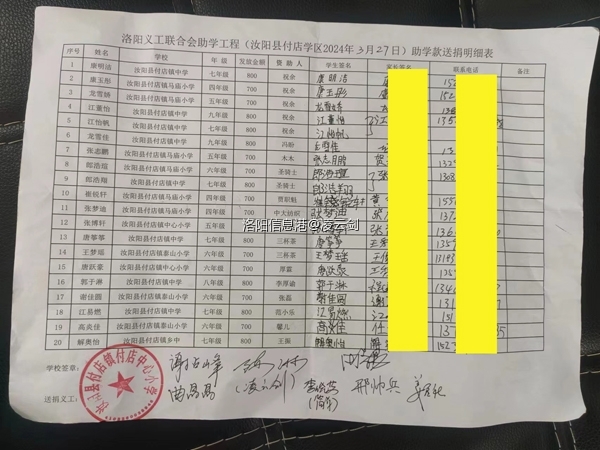 洛阳义工联合会助学工程（汝阳县付店学区2024年3月27日）助学款送捐明细表
序号 姓名 学校 年级 发放金额 资助人 学生签名 家长签名 联系电话 备注
1 康明洁 汝阳县付店镇中学 七年级 800 祝余 康明洁 152
2 康玉彤 汝阳县付店镇马庙小学 四年级 700 祝余 康玉彤 152
3 龙雪娇 汝阳县付店镇马庙小学 五年级 700 祝余 龙雪娇
4 江董怡 汝阳县付店镇中学 九年级 800 祝余 江董怡 135
5 江怡帆 汝阳县付店镇中学 七年级 800 祝余 江怡帆
6 龙雪佳 汝阳县付店镇中学 九年级 800 冯盼 龙雪佳 13
7 张志鹏 汝阳县付店镇马庙小学 五年级 700 木木 张志鹏 132
8 郎浩煊 汝阳县付店镇中学 四年级 700 圣骑士 郎浩煊 138
9 郎浩翔 汝阳县付店镇中学 七年级 800 圣骑士 郎浩翔
10 崔锐轩 汝阳县付店镇马庙小学 四年级 700 贾原魁 崔锐轩 155
11 张梦迪 汝阳县付店镇马庙小学 四年级 700 中大纺织 张梦迪 137
12 张博轩 汝阳县付店镇中心小学 五年级 700 张 136
13 唐筝筝 汝阳县付店镇中学 七年级 800 三杯茶 唐筝筝 王 135
14 王梦瑶 汝阳县付店镇中心小学 六年级 700 三杯茶 王梦瑶 王
15 唐跃豪 汝阳县付店镇泰山小学 六年级 700 厚霖 唐跃豪 王
16 郭子淋 汝阳县付店镇中学 八年级 800 李厚谕 郭子淋 134
17 谢佳圆 汝阳县付店镇泰山小学 六年级 700 张磊 谢佳圆 谢 131
18 江易燃 汝阳县付店镇中学 七年级 800 范小乐 江易燃 江 151
19 高炎佳 汝阳县付店镇泰山小学 六年级 700 馨儿 高炎佳 任 137
20 解奥怡 汝阳县付店镇乡中 七年级 800 王振 解奥怡 解 152
洛阳信息港@凌云剑
学校签章：
汝阳县付店镇付店中心小学
（凌云剑）
送捐义工： 邢帅兵